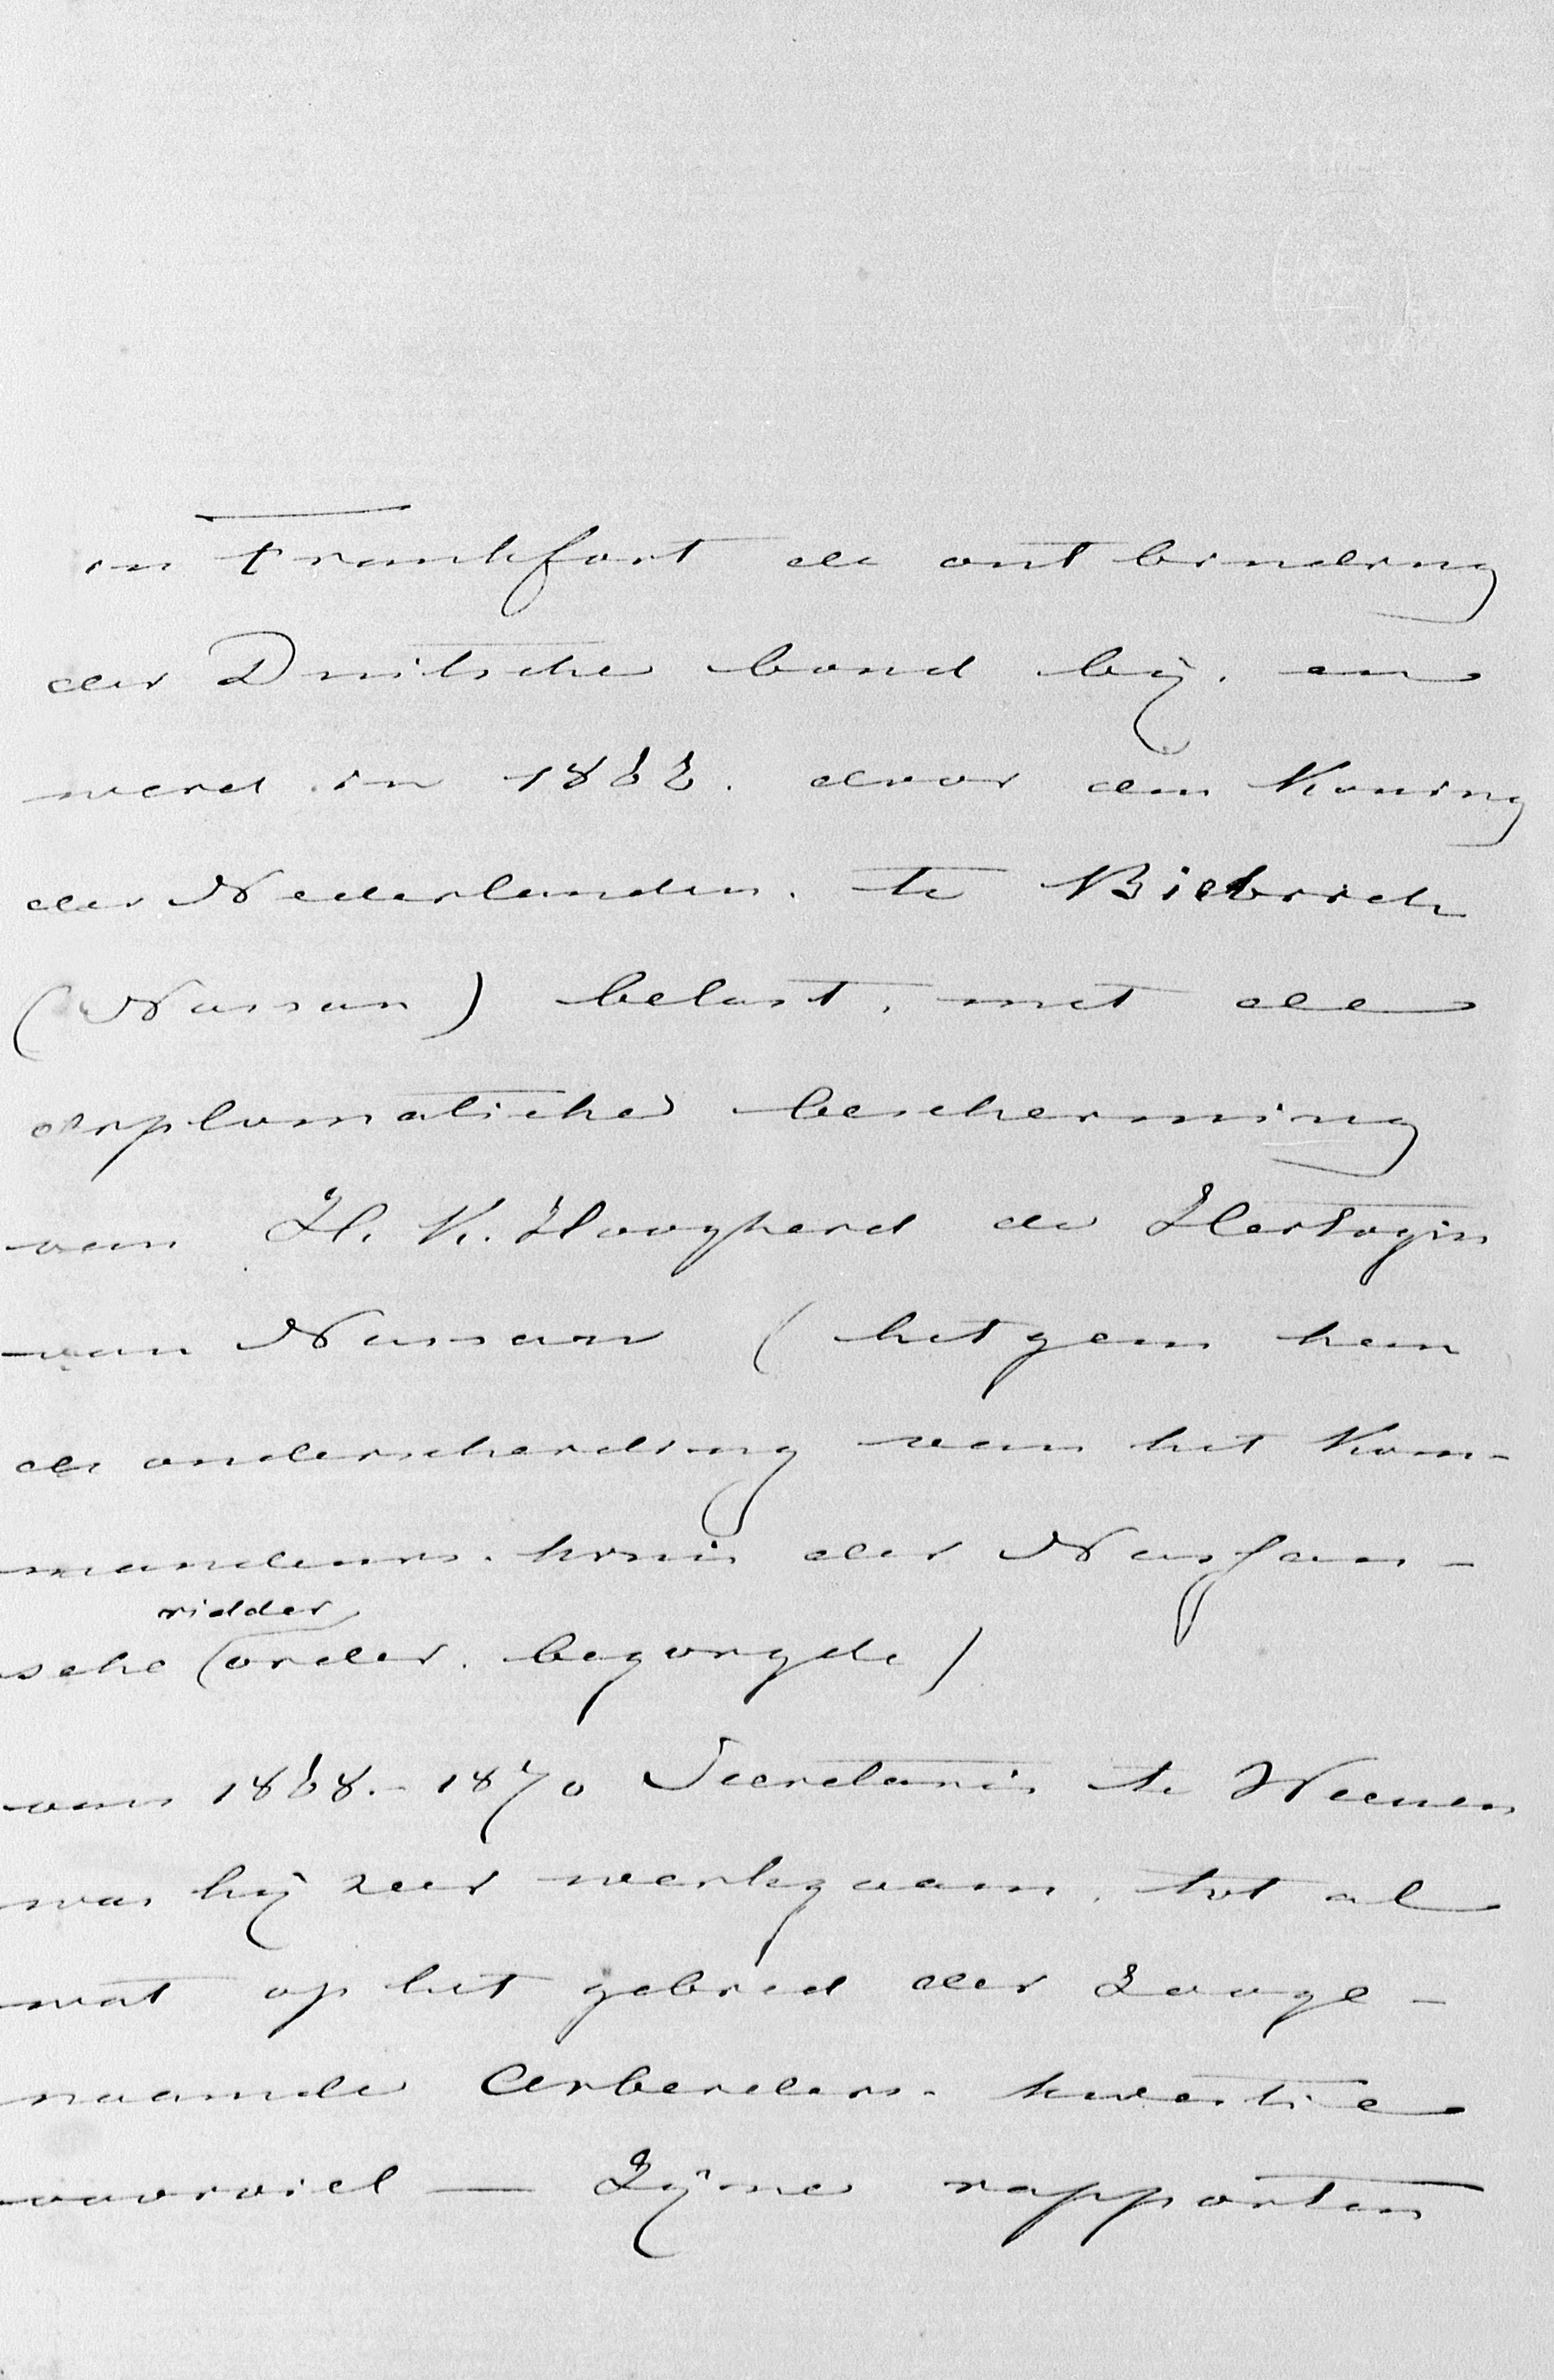 in Frankfort de ontbinding
der Duitsche bond bij. en
werd in 1866. door den Koning
der Nederlanden. te Biebrich
(Nassau) belast. met de
diplomatische bescherming
van H. K. Hoogheid de Hertogin
van Nassau (hetgeen hem
de onderscheiding van het Kom-
mandeurs. kruis der Nassau-
ridder
sche (order. bezorgde)
van 1868.- 1870 Secretaris te Weenen
was hij zeer werkzaam. tot al
wat op het gebied der Zooge-
naamde Arbeiders- kwestie
voorviel — Zijne rapporten